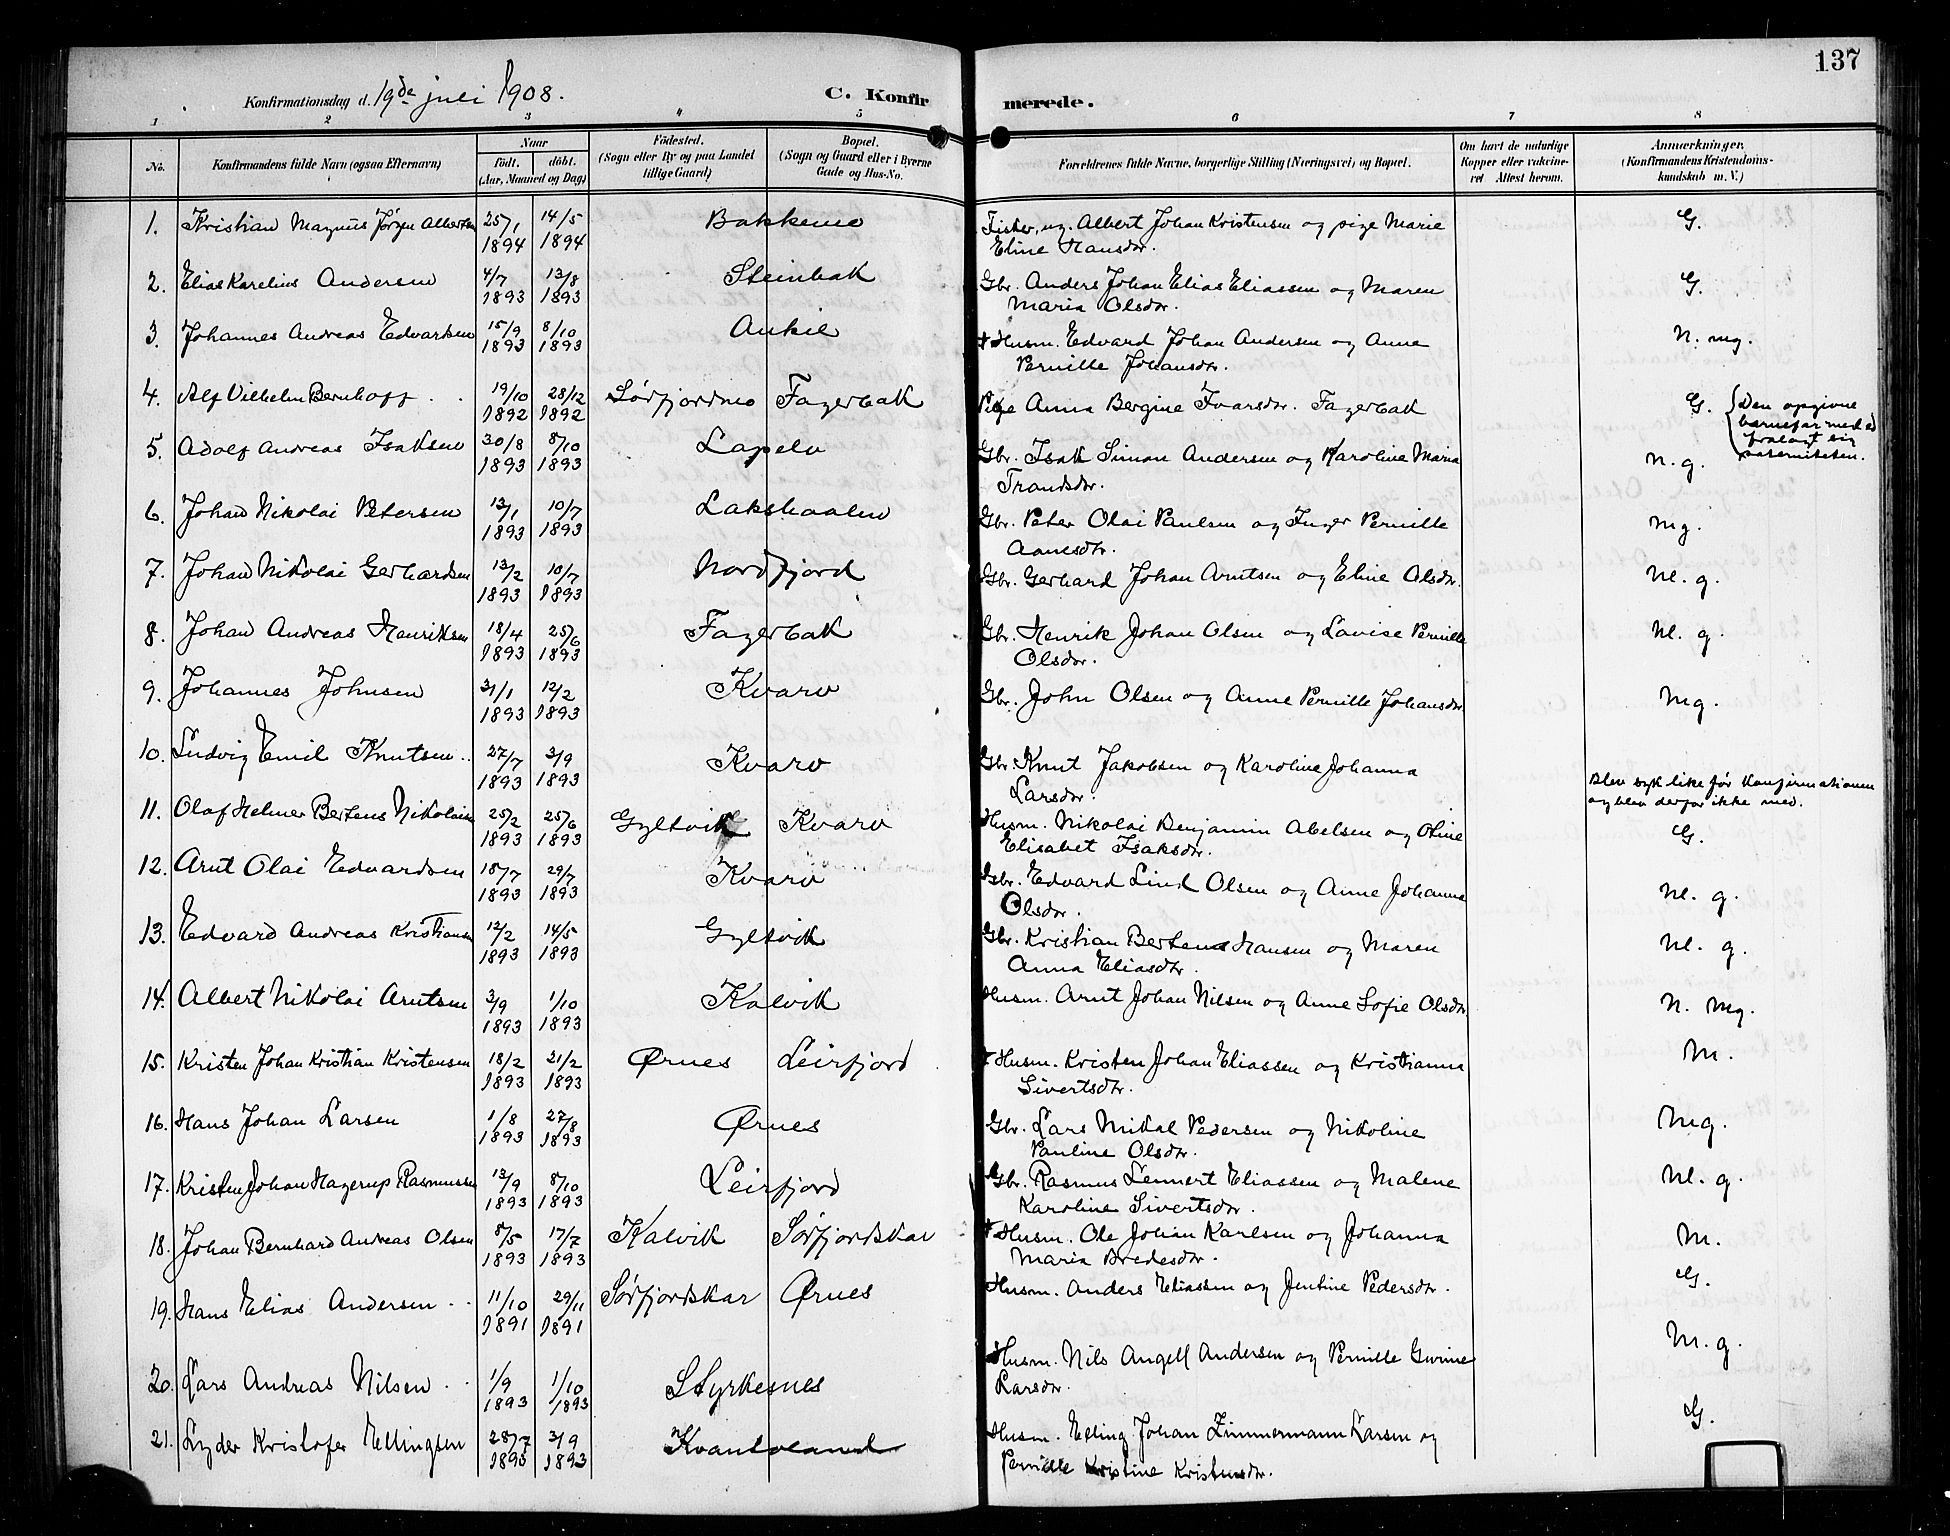 137
Konfirmationsdag d. 19de juli 1908.
C. Konfir
merede.
1 2 3 4 5 6 7 8
No.
Konfirmandens fulde Navn (ogsaa Efternavn)
Naar
født. døbt.
(Aar, Maaned og Dag)
Födested.
(Sogn eller By og paa Landet
tillige Gaard)
Bopæl.
(Sogn og Gaard eller i Byerne
Gade og Hus-No.
Forældrenes fulde Navne, borgerlige Stilling (Næringsvei) og Bopæl.
Om havt de naturlige
Kopper eller vaksine-
ret Attest herom.
Anmærkninger.
(Konfirmandens Kristendoms-
kundskab m. V.)
1. Kristian Magnus Jørgen Albertsen 25/1 1894 14/5 1894 Bakkene Fisker, ug. Albert Johan Kristensen og pige Marie G.
Eline Hansdtr.
2. Elias Karelius Andersen 4/7 1893 13/8 1893 Steinbak Gbr. Anders Johan Elias Eliassen og Maren G.
Maria Olsdtr.
3. Johannes Andreas Edvardsen 15/9 1893 8/10 1893 Aukil † Husm. Edvard Johan Andersen og Anne N. mg.
Pernille Johansdtr.
4. Alf Vilhelm Bernhoff 19/10 1892 28/12 1892 Sørfjordmo Fagerbak Pige Anna Bergine Ivarsdtr. Fagerbak G. Den opgivne
barnefar med ed
fralagt sig
paterniteten.
5. Adolf Andreas Isaksen 30/8 1893 8/10 1893 Lapelv Gbr. Isak Simon Andersen og Karoline Maria N. g.
Trandsdtr.
6. Johan Nikolai Petersen 13/1 1893 10/7 1893 Lakshaalen Gbr. Peter Olai Paulsen og Inger Pernille Mg.
Aanesdtr.
7. Johan Nikolai Gerhardsen 13/2 1893 10/7 1893 Nordfjord Gbr. Gerhard Johan Arntsen og Eline Olsdtr. Ml. g.
8. Johan Andreas Henriksen 18/4 1893 25/6 1893 Fagerbak Gbr. Henrik Johan Olsen og Lovise Pernille Ml. g.
Olsdtr.
9. Johannes Johnsen 31/1 1893 12/2 1893 Kvarv Gbr. John Olsen og Anne Pernille Johansdtr. Mg.
10. Ludvig Emil Knutsen 27/7 1893 3/9 1893 Kvarv Gbr. Knut Jakobsen og Karoline Johanna
Larsdtr.
Blev syk like før konfirmationen
og blev derfor ikke med.
11. Olaf Helmer Bertens Nikolaisen 25/2 1893 25/6 1893 Gyltvik Kvarv Husm. Nikolai Benjamin Abelsen og Oline G.
Elisabet Isaksdtr.
12. Arnt Olai Edvardsen 18/7 1893 29/7 1893 Kvarv Gbr. Edvard Lind Olsen og Anne Johanna Ml. g.
Olsdtr.
13. Edvard Andreas Kristiansen 12/2 1893 14/5 1893 Gyltvik Gbr. Kristian Bertens Hansen og Maren Ml. g.
Anna Eliasdtr.
14. Albert Nikolai Arntsen 3/9 1893 1/10 1893 Kalvik Husm. Arnt Johan Nilsen og Anne Sofie Olsdtr N. Mg.
15. Kristen Johan Kristian Kristensen 18/2 1893 21/2 1893 Ørnes Leirfjord † Husm. Kristen Johan Eliassen og Kristianna M.
Sivertsdtr.
16. Hans Johan Larsen 1/8 1893 27/8 1893 Ørnes Gbr. Lars Mikal Pedersen og Nikoline Mg.
Pauline Olsdtr.
17. Kristen Johan Hagerup Rasmussen 13/9 1893 8/10 1893 Leirfjord Gbr. Rasmus Lennert Eliassen og Malene Ml. g.
Karoline Sivertsdtr.
18. Johan Bernhard Andreas Olsen 8/5 1893 17/7 1893 Kalvik Sørfjordskar † Husm. Ole Johan Karlsen og Johanna M.
Maria Bredesdtr.
19. Hans Elias Andersen 11/10 1891 29/11 1891 Sørfjordskar Ørnes Husm. Anders Eliassen og Jentine Pedersdtr. G.
20. Lars Andreas Nilsen 1/9 1893 1/10 1893 Styrkesnes Husm. Nils Angell Andersen og Pernille Gurine M. g.
Larsdtr.
21. Lyder Kristofer Ellingsen 28/7 1893 3/9 1893 Kvantoland Husm. Elling Johan Zimmermann Larsen og G.
Pernille Kristine Kristensdtr.